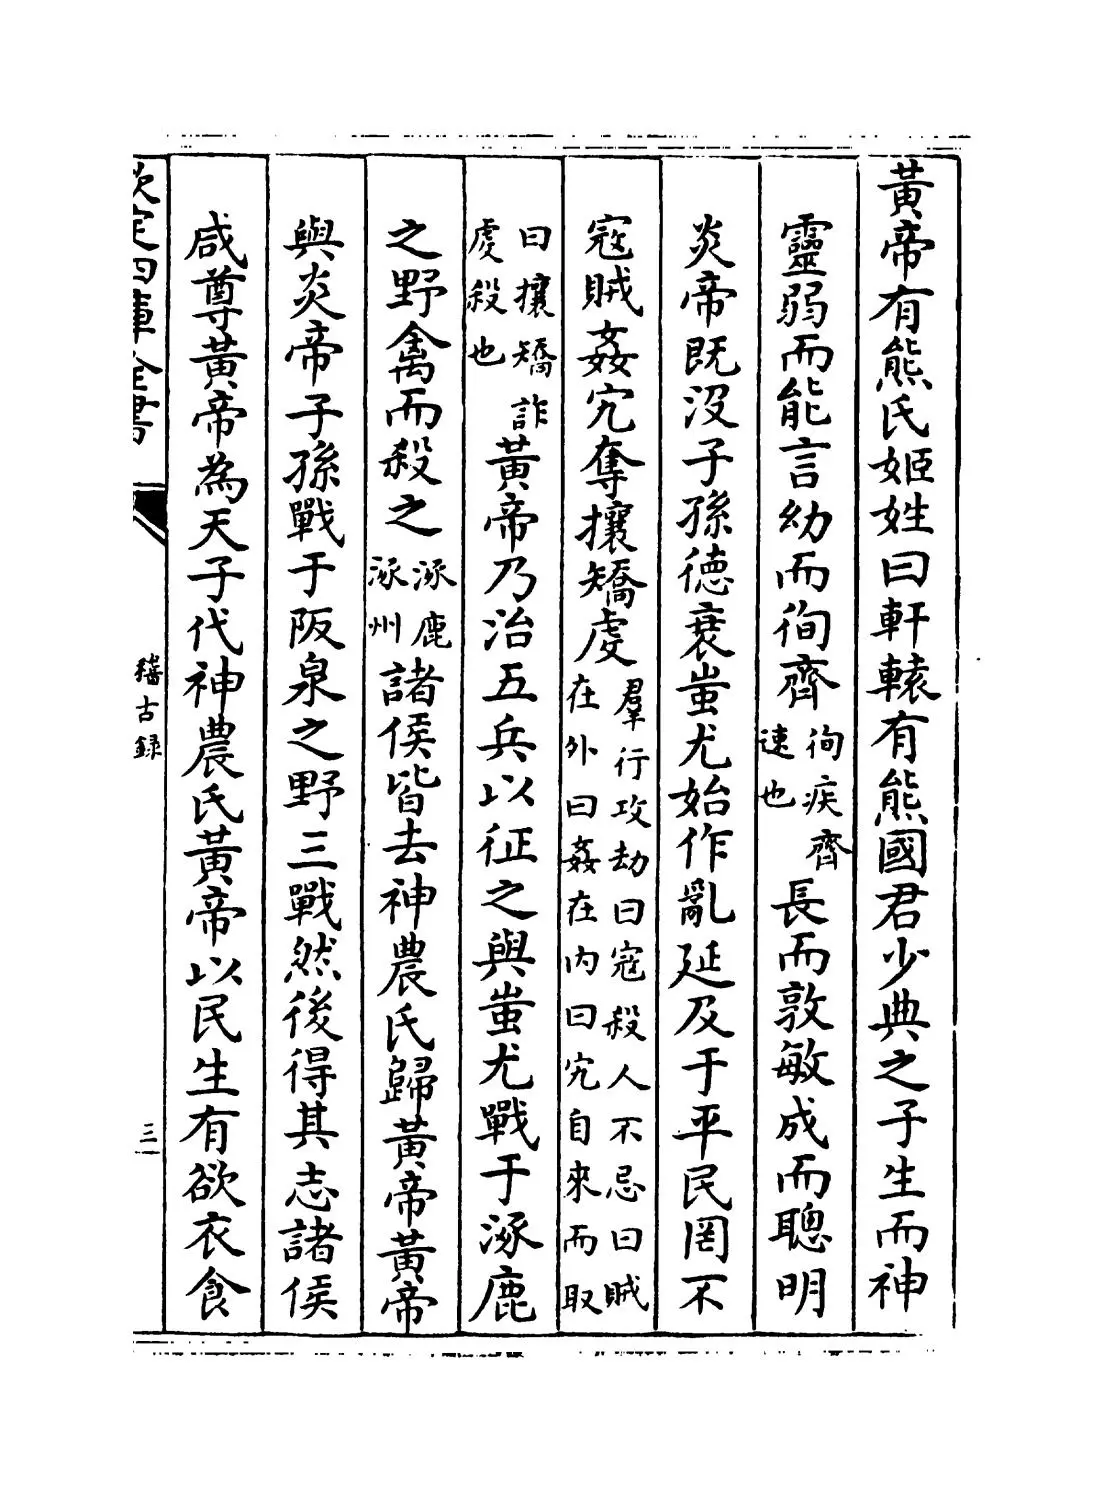 黃帝有熊氏姬姓曰軒轅有熊國君少典之子生而神
靈弱而能言幼而徇齊徇疾齊速也長而敦敏成而聰明
炎帝既沒子孫德衰蚩尤始作亂延及于平民罔不
寇賊姦宄奪攘矯虔羣行攻劫曰寇殺人不忌曰賊在外曰姦在内曰宄自來而取
曰攘矯詐虔殺也黃帝乃治五兵以征之與蚩尤戰于涿鹿
之野禽而殺之涿鹿涿州諸侯皆去神農氏歸黃帝黃帝
與炎帝子孫戰于阪泉之野三戰然後得其志諸侯
咸尊黃帝為天子代神農氏黃帝以民生有欲衣食
欽定四庫全書
稽古録
三